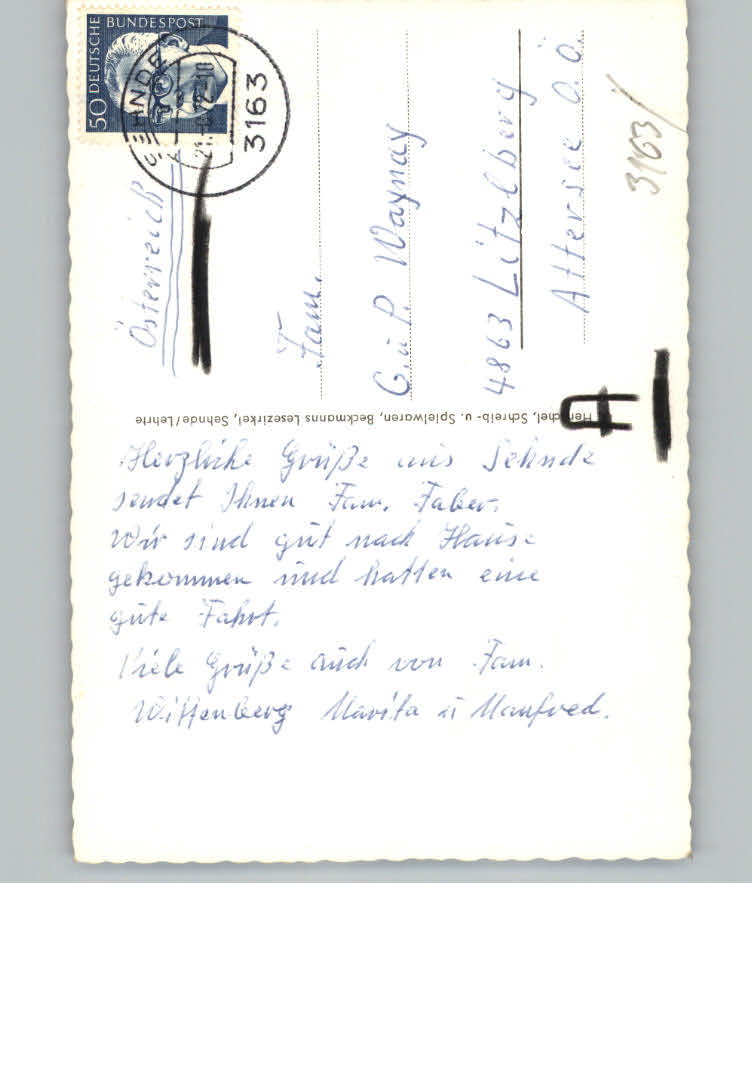 50 DEUTSCHE BUNDESPOST
SEHNDE
3163
3163
Österreich
Fam.
G. u. P. Waynay
4863 Litzlberg
Attersee O.Ö.
Schreib- u. Spielwaren, Beckmanns Lesezirkel, Sehnde/Lehrte
Herzliche Grüße aus Sehnde
sendet Ihnen Fam. Faber.
Wir sind gut nach Hause
gekommen und hatten eine
gute Fahrt.
Viele Grüße auch von Fam.
Wittenberg Marita u Manfred.